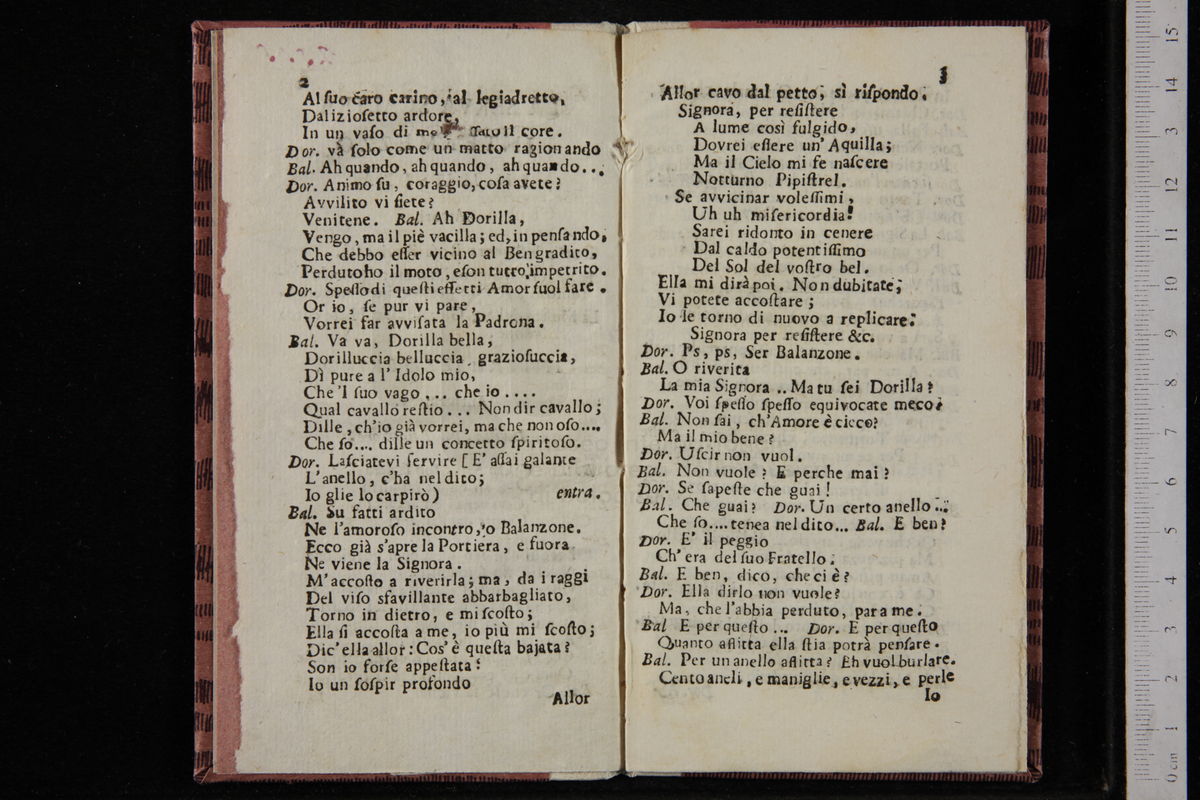 2
Al ſuo caro carino, al legiadretto,
Daliziofetto ardore,
In un vaſo di il core.
Dor. và ſolo come un matto ragionando
Bal. Ah quando, ah quando, ah quando...
Dor. Animo ſu, coraggio, coſa avete?
Avvilito vi ſiete?
Venitene. Bal. Ah Dorilla,
Vengo, ma il piè vacilla; ed, in penſando,
Che debbo eſſer vicino al Ben gradito,
Perduto ho il moto, e ſon tutto impetrito.
Dor. Speſſo di queſti effetti Amor ſuol fare.
Or io, ſe pur vi pare,
Vorrei far avviſata la Padrona.
Bal. Va va, Dorilla bella,
Dorilluccia belluccia, grazioſuccia,
Dì pure a l' Idolo mio,
Che 'l ſuo vago ... che io ....
Qual cavallo reſtio... Non dir cavallo;
Dille, ch'io già vorrei, ma che non oſo....
Che ſo.... dille un concetto ſpiritoſo.
Dor. Laſciatevi ſervire [ E' aſſai galante
L'anello, c'ha nel dito;
Io glie lo carpirò) entra.
Bal. Su fatti ardito
Ne l'amoroſo incontro, o Balanzone.
Ecco già s'apre la Portiera, e fuora
Ne viene la Signora.
M'accoſto a riverirla; ma, da i raggi
Del viſo sfavillante abbarbagliato,
Torno in dietro, e mi ſcoſto;
Ella ſi accoſta a me, io più mi ſcoſto;
Dic' ella allor: Cos' è queſta bajata?
Son io forſe appeſtata?
Io un ſoſpir profondo
Allor
3
Allor cavo dal petto, sì riſpondo.
Signora, per reſiſtere
A lume così fulgido,
Dovrei eſſere un' Aquilla;
Ma il Cielo mi fe naſcere
Notturno Pipiſtrel.
Se avvicinar voleſſimi,
Uh uh miſericordia!
Sarei ridonto in cenere
Dal caldo potentiſſimo
Del Sol del voſtro bel.
Ella mi dirà poi. Non dubitate;
Vi potete accoſtare;
Io le torno di nuovo a replicare:
Signora per reſiſtere &c.
Dor. Ps, ps, Ser Balanzone.
Bal. O riverita
La mia Signora .. Ma tu ſei Dorilla?
Dor. Voi ſpeſſo ſpeſſo equivocate meco?
Bal. Non ſai, ch'Amore è cieco?
Ma il mio bene?
Dor. Uſcir non vuol.
Bal. Non vuole? E perche mai?
Dor. Se ſapeſte che guai!
Bal. Che guai? Dor. Un certo anello...
Che ſo.... tenea nel dito... Bal. E ben?
Dor. E' il peggio
Ch' era del ſuo Fratello.
Bal. E ben, dico, che ci è?
Dor. Ella dirlo non vuole?
Ma, che l'abbia perduto, par a me.
Bal E per queſto ... Dor. E per queſto
Quanto aflitta ella ſtia potrà penſare.
Bal. Per un anello aflitta? Eh vuol burlare.
Cento aneli, e maniglie, e vezzi, e perle
Io